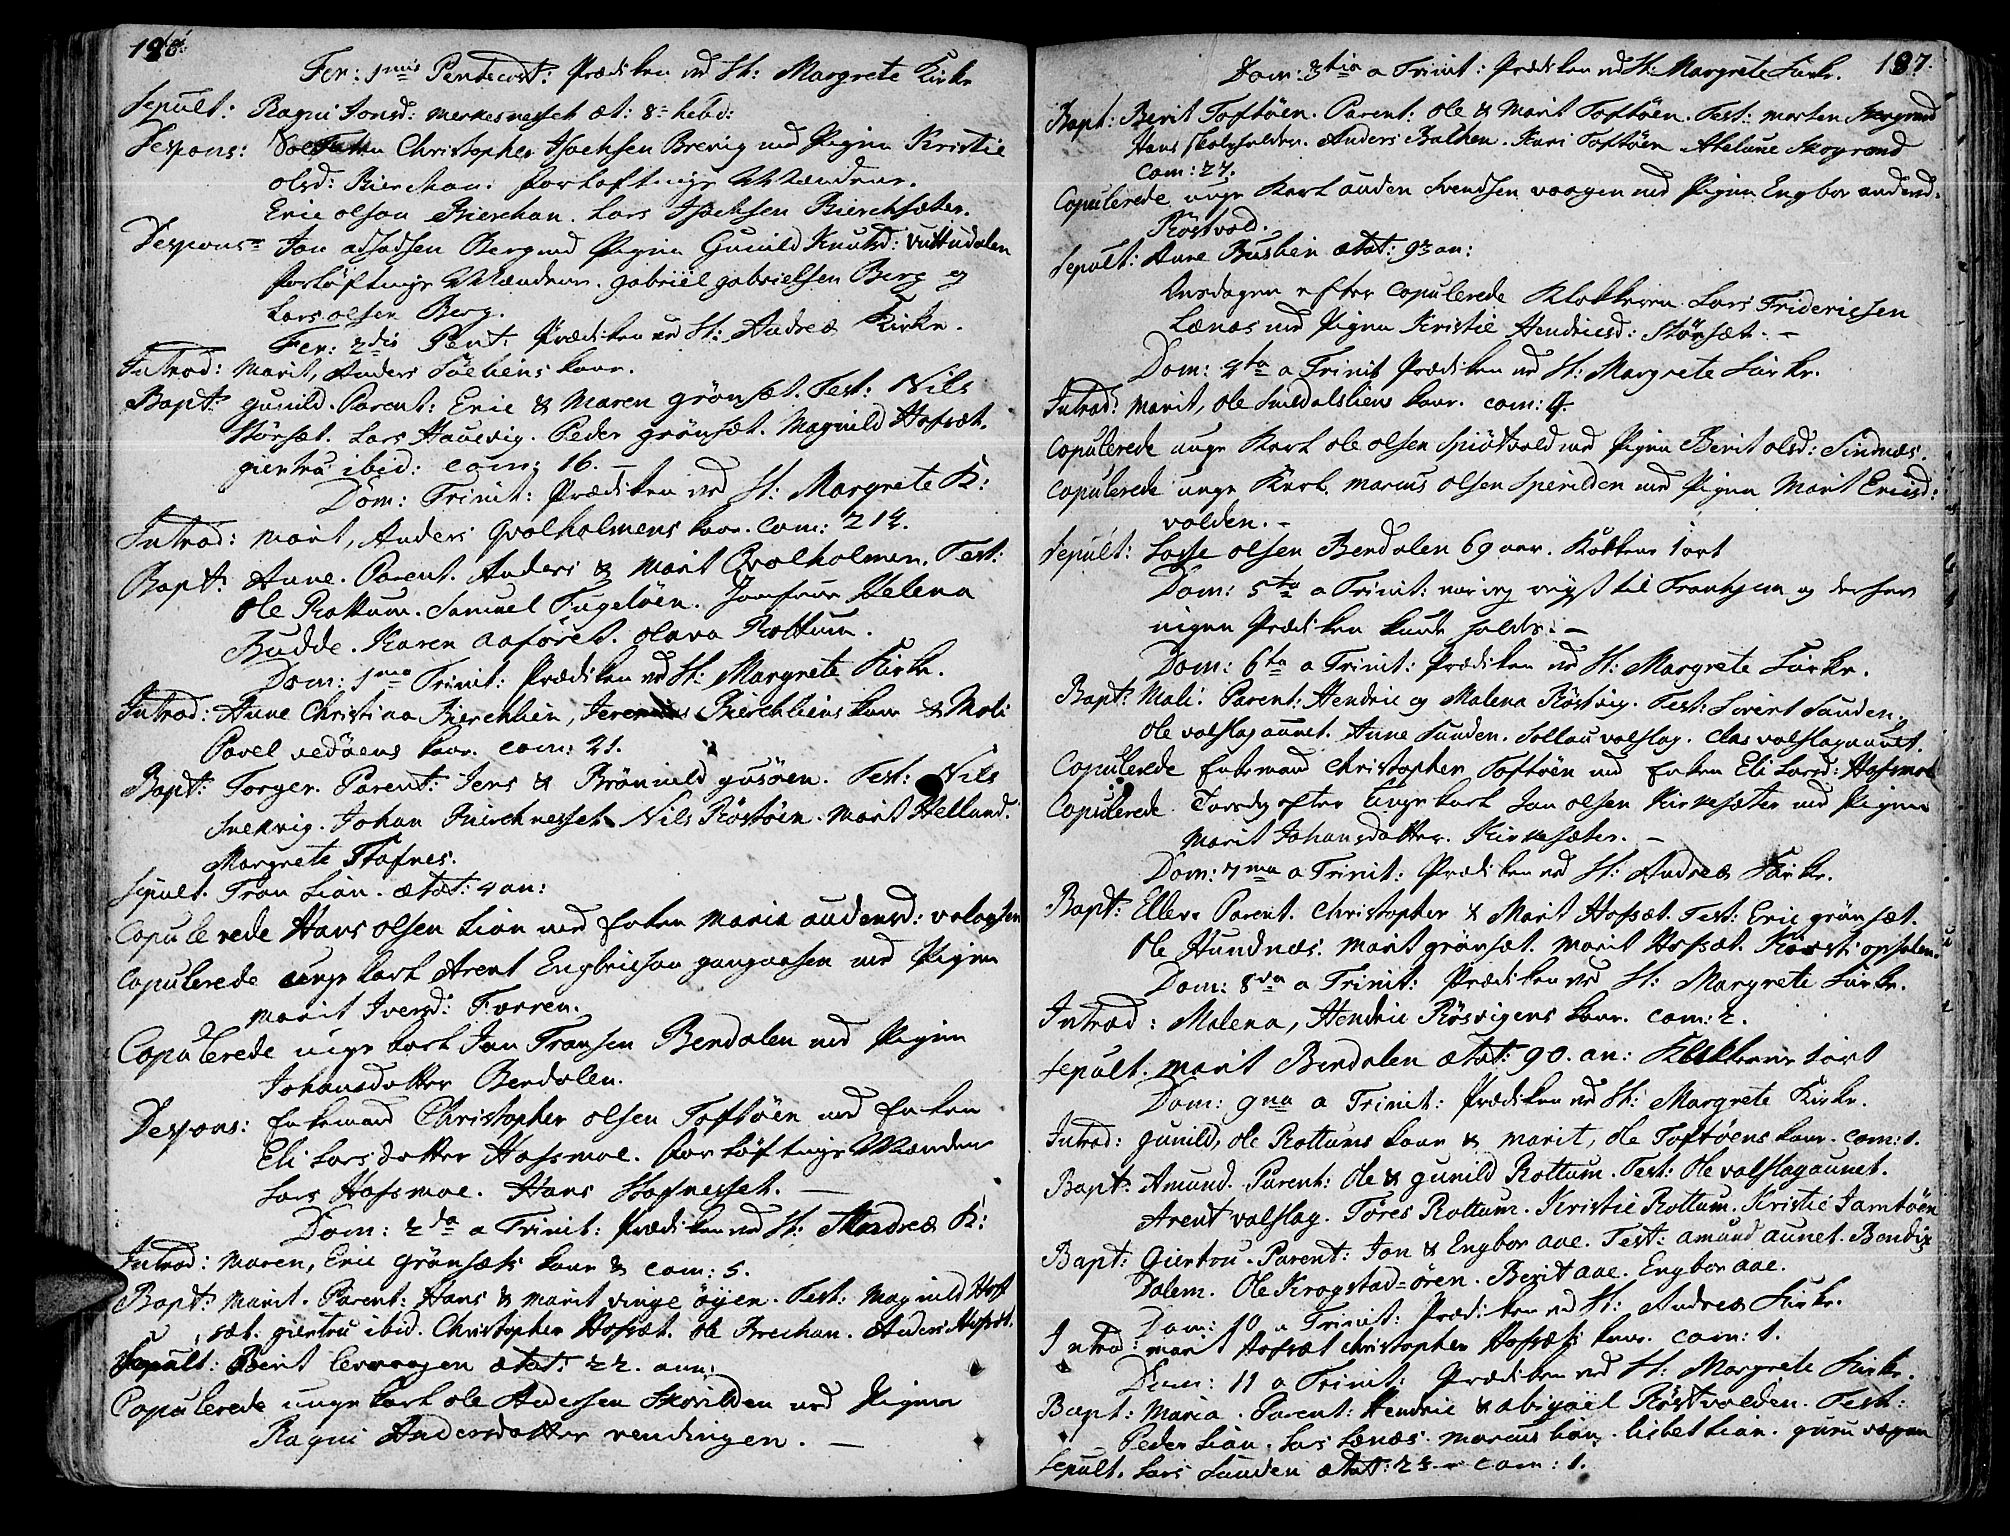 186.
Fer: 1mis Pentecost: Prædiken ved St: Margrete Kirke
Sepult: Ragni Jonsd: merkesnesset æt: 8 hebd:
Despons: Christopher Isachsen Brevig med Pigen Kristie
olsd: Bierchan: forløftninge Mændene.
Eric olsen Bierchan. Lars Isachsen Bierchsæter.
Despons: Jon Berg med Pigen Gunild Knutsd: Vuttudalen
forløftninge Mændene. gabriel gabrielsen Berg og
Lars olsen Berg.
Fer: 2dis Pent: Prædiken ved St: Andreæ Kirke.
Introd: Marit, Anders Søeliens kone.
Bapt: gunild. Parent: Eric & Maren grönset. Test: Nils
Störset. Lars Hauevig. Peder grönset. Magnild Hofset.
giertru ibid: com: 16. –
Dom: Trinit: Prædiken ved St: Margrete K:
Introd: marit, Anders Qvolholmens kone. Com: 214.
Bapt: Anne. Parent. Anders & Marit Qvolholmen. Test:
Ole Rottum. Samuel Fugeløen. Jomfrue Helena
Budde. Karen Aaföret. olava Rottum.
Dom: 1ma Trinit: Prædiken ved St: Margrete Kirke.
Introd: Anne Christina Bierchlien, Jeremias Bierchliens kone & Mali
Povel vedöens kone. com: 21.
Bapt: Torger. Parent: Jens & Brönild gusöen. Test: Nils
Snekvig. Johan Nils Röstöen. Marit Helland.
Margrete Stafnes.
Sepult. Tron Lian. ætat: 4 an:
Copulerede Hans olsen Lian med Enken Maria audensd:
Copulerede unge karl Arent Engbricson gangaasen med Pigen
marit Iversd: Forren.
Copulerede unge karl Jon Tronsen Bendalen med Pigen
Johansdatter Bendalen.
Despons: Enkemand Christopher olsen Toftöen med Enken
Eli Larsdatter Hofsmoe. forløftninge Mænder
Lars Hofsmoe. Hans Stafnesset. –
Dom: 2da a Trinit: Prædiken ved St: Andreæ K:
Introd: Maren, Eric Grönsets kone & com: 5.
Bapt: Marit. Parent: Hans & marit vinge öyen. Test: Magnild Hof
sæt. giertru ibid. Christopher Hofsæt. Ole Brechan. Anders Hofset.
Sepult: Berit Lervaagen ætat: 22. ann:
Copulerede unge karl ole Andersen Skorilden med Pigen
Ragni Andersdatter vendingen. –
187.
Dom: 3tia a Trinit: Prædiken ved St: Margrete Kirke.
Bapt: Berit Toftöen. Parent: ole & Marit Toftöen. Test: morten Skogrand
Hans Skoleholder. Anders Balchen. Kari Toftöen Skogrand
Com: 27.
Copulerede unge Karl auden Svendsen vaagen med Pigen Engbor andersd.
Röstvold.
Sepult: Anne Buslien ætat: 92 an:
Onsdagen efter Copulerede Klokkeren Lars Fridericsen
Lenæs med Pigen Kristie Hendricsd: Störset. –
Dom: 4ta a Trinit Prædiken ved St: Margrete Kirke.
Introd: marit, ole Smedalsliens kone. com: 4.
Copulerede unge Karl ole olsen Spiötvold med Pigen Berit olsd: Sindnæs.
Copulerede unge Karl. Marcus Olsen Sperilden med Pigen Marit Ericsd:
volden. –
Sepult: Lasse olsen Bendalen 69 aar.
Dom: 5ta a Trinit: var jeg reyst til Tronhjem og derfor
ingen Prædiken kunde holdes. –
Dom: 6ta a Trinit: Prædiken ved St: Margrete Kirke.
Bapt: Mali. Parent: Hendric og Malena Röstvig. Test: Sunden.
Ole valslagaunet. Anne Sunden. valslag. Clas valslagaunet.
Copulerede Enkemand Christopher Toftöen med Enken Eli Larsd: Hofsmoe
Copulerede Torsdag efter unge karl Jon olsen Kirkesæter med Pigen
Marit Johansdatter. Kirkesæter. –
Dom: 7ma a Trinit: Prædiken ved St: Andreæ Kirke.
Bapt: Ellev. Parent. Christopher & Marit Hofsæt. Test: Eric grönset.
Ole Hundnæs. Marit grönset. Marit Hofsæt. Kirsti
Dom: 8va a Trinit: Prædiken ved St: Margrete Kirke.
Introd: Malena, Hendric Rösvigens kone. com: 2.
Sepult. marit Bendalen ætat: 90. an:
Dom: 9na a Trinit: Prædiken ved St: Margrete Kirke.
Introd: gunild, ole Rottums kone & marit, ole Toftöens kone. com: 1.
Bapt: Amund. Parent: Ole & gunild Rottum. Test: Ole valslagaunet.
Arent valslag. Töres Rottum. Kristie Rottum. Kristie Jamtöen
Bapt: Giertru. Parent: Jon & Engbor aae. Test: amund aunet. Bendix
Dalem. Ole Krogstad=ören. Berit aae. Engbor aae.
Dom: 10 a Trinit: Prædiken ved St: Andreæ Kirke.
Introd: marit Hofsæt Christopher Hofsæts kone. com: 1.
Dom: 11 a Trinit: Prædiken ved St: Margrete Kirke.
Bapt: Maria. Parent: Hendric & abigael Röstvolden. Test:
Peder Lian. Lars Lenæs. Marcus Lian. lisbet Lian. guru vaagen
Sepult. Lars Sunden ætat: 23 – com: 1.